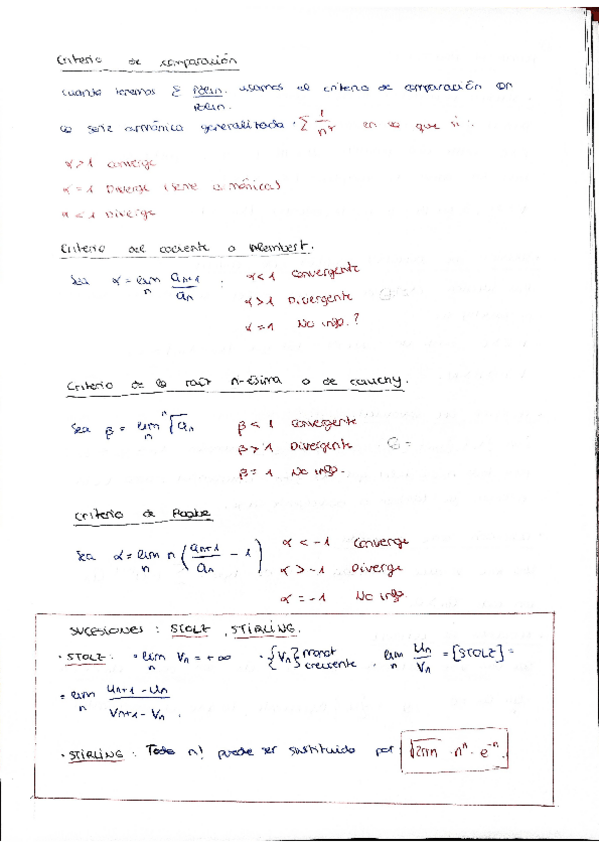 Criterio de comparación
cuando tenemos Σ Polin./Polin. usamos el criterio de comparación con
la serie armónica generalizada · Σ 1/n^α en la que si:
α > 1 converge
α = 1 Diverge (serie armónica)
α < 1 Diverge
Criterio del cociente o Alembert.
Sea α = lim_n a_{n+1}/a_n : α < 1 convergente
α > 1 Divergente
α = 1 No info.?
Criterio de la raíz n-ésima o de cauchy.
Sea β = lim_n ⁿ√a_n β < 1 convergente
β > 1 Divergente
β = 1 No info.
Criterio de Raabe
Sea α = lim_n n (a_{n+1}/a_n - 1) α < -1 Converge
α > -1 Diverge
α = -1 No info
SUCESIONES : STOLZ , STIRLING.
· STOLZ: · lim_n V_n = +∞ · {V_n} monot creciente . lim_n U_n/V_n = [STOLZ] =
= lim_n (U_{n+1} - U_n)/(V_{n+1} - V_n) .
· STIRLING : Todo n! puede ser sustituido por √2πn · nⁿ · e⁻ⁿ.